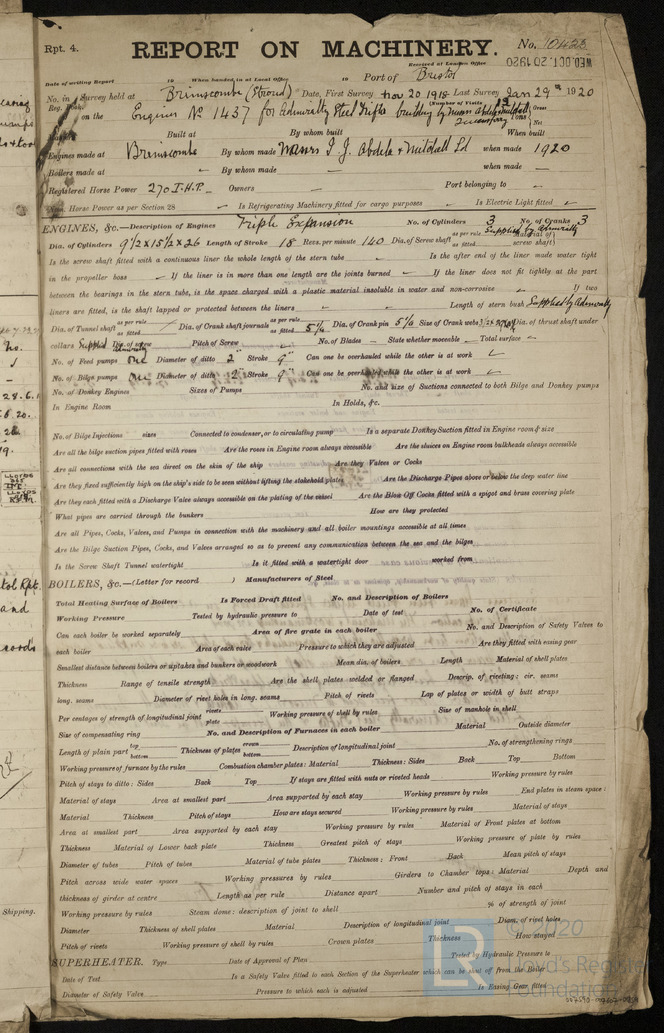 Rpt. 4.
REPORT ON MACHINERY.
No. 10423
Received at London Office
WED. OCT. 20 1920
Date of writing Report 19 When handed in at Local Office 19 Port of Bristol
No. in Survey held at Brimscombe (Stroud) Date, First Survey Nov 20 1918 Last Survey Jan 29th 1920
Reg. Book. (Number of Visits
on the Engines No 1437 for Admiralty Steel Drifter building by Messrs Abdela & Mitchell
Gross
Tons
Net
Built at By whom built When built
Engines made at Brimscombe By whom made Messrs I. J. Abdela & Mitchell Ld when made 1920
Boilers made at By whom made when made
Registered Horse Power 270 I.H.P. Owners Port belonging to
Nom. Horse Power as per Section 28 Is Refrigerating Machinery fitted for cargo purposes Is Electric Light fitted
ENGINES, &c.—Description of Engines Triple Expansion No. of Cylinders 3 No. of Cranks 3
Dia. of Cylinders 9½ x 15½ x 26 Length of Stroke 18 Revs. per minute 140 Dia. of Screw shaft as per rule as fitted Supplied by Admiralty Material of screw shaft)
Is the screw shaft fitted with a continuous liner the whole length of the stern tube Is the after end of the liner made water tight
in the propeller boss If the liner is in more than one length are the joints burned If the liner does not fit tightly at the part
between the bearings in the stern tube, is the space charged with a plastic material insoluble in water and non-corrosive If two
liners are fitted, is the shaft lapped or protected between the liners Length of stern bush Supplied by Admiralty
Dia. of Tunnel shaft as per rule as fitted Dia. of Crank shaft journals as per rule as fitted 5¼ Dia. of Crank pin 5¼ Size of Crank webs Dia. of thrust shaft under
collars Supplied Admiralty Dia. of screw Pitch of Screw No. of Blades State whether moveable Total surface
No. of Feed pumps One Diameter of ditto 2" Stroke 9" Can one be overhauled while the other is at work
No. of Bilge pumps One Diameter of ditto 2" Stroke 9" Can one be overhauled while the other is at work
No. of Donkey Engines Sizes of Pumps No. and size of Suctions connected to both Bilge and Donkey pumps
In Engine Room In Holds, &c.
No. of Bilge Injections sizes Connected to condenser, or to circulating pump Is a separate Donkey Suction fitted in Engine room & size
Are all the bilge suction pipes fitted with roses Are the roses in Engine room always accessible Are the sluices on Engine room bulkheads always accessible
Are all connections with the sea direct on the skin of the ship Are they Valves or Cocks
Are they fixed sufficiently high on the ship's side to be seen without lifting the stokehold plates Are the Discharge Pipes above or below the deep water line
Are they each fitted with a Discharge Valve always accessible on the plating of the vessel Are the Blow Off Cocks fitted with a spigot and brass covering plate
What pipes are carried through the bunkers How are they protected
Are all Pipes, Cocks, Valves, and Pumps in connection with the machinery and all boiler mountings accessible at all times
Are the Bilge Suction Pipes, Cocks, and Valves arranged so as to prevent any communication between the sea and the bilges
Is the Screw Shaft Tunnel watertight Is it fitted with a watertight door worked from
BOILERS, &c.—(Letter for record ) Manufacturers of Steel
Total Heating Surface of Boilers Is Forced Draft fitted No. and Description of Boilers
Working Pressure Tested by hydraulic pressure to Date of test No. of Certificate
Can each boiler be worked separately Area of fire grate in each boiler No. and Description of Safety Valves to
each boiler Area of each valve Pressure to which they are adjusted Are they fitted with easing gear
Smallest distance between boilers or uptakes and bunkers or woodwork Mean dia. of boilers Length Material of shell plates
Thickness Range of tensile strength Are the shell plates welded or flanged Descrip. of riveting: cir. seams
long. seams Diameter of rivet holes in long. seams Pitch of rivets Lap of plates or width of butt straps
Per centages of strength of longitudinal joint rivets plate Working pressure of shell by rules Size of manhole in shell
Size of compensating ring No. and Description of Furnaces in each boiler Material Outside diameter
Length of plain part top bottom Thickness of plates crown bottom Description of longitudinal joint No. of strengthening rings
Working pressure of furnace by the rules Combustion chamber plates: Material Thickness: Sides Back Top Bottom
Pitch of stays to ditto: Sides Back Top If stays are fitted with nuts or riveted heads Working pressure by rules
Material of stays Area at smallest part Area supported by each stay Working pressure by rules End plates in steam space:
Material Thickness Pitch of stays How are stays secured Working pressure by rules Material of stays
Area at smallest part Area supported by each stay Working pressure by rules Material of Front plates at bottom
Thickness Material of Lower back plate Thickness Greatest pitch of stays Working pressure of plate by rules
Diameter of tubes Pitch of tubes Material of tube plates Thickness: Front Back Mean pitch of stays
Pitch across wide water spaces Working pressures by rules Girders to Chamber tops: Material Depth and
thickness of girder at centre Length as per rule Distance apart Number and pitch of stays in each
Working pressure by rules Steam dome: description of joint to shell % of strength of joint
Diameter Thickness of shell plates Material Description of longitudinal joint Diam. of rivet holes
Pitch of rivets Working pressure of shell by rules Crown plates Thickness How stayed
SUPERHEATER. Type Date of Approval of Plan Tested by Hydraulic Pressure to
Date of Test Is a Safety Valve fitted to each Section of the Superheater which can be shut off from the Boiler
Diameter of Safety Valve Pressure to which each is adjusted Is Easing Gear fitted
© 2020
Lloyd's Register
Foundation
LR
Shipping.